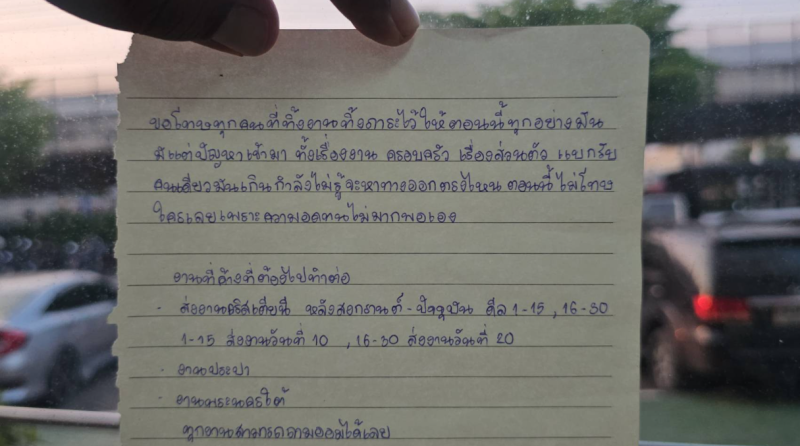 ขอโทษทุกคนที่ทิ้งงานทิ้งภาระไว้ให้ตอนนี้ทุกอย่างมัน
มีแต่ปัญหาเข้ามา ทั้งเรื่องงาน ครอบครัว เรื่องส่วนตัว แบกรับ
คนเดียวมันเกินกำลังไม่รู้จะหาทางออกตรงไหน ตอนนี้ไม่โทษ
ใครเลยเพราะความอดทนไม่มากพอเอง
งานที่ค้างที่ต้องไปทำต่อ
- ส่งงานคริสเตียนี หลังสงกรานต์ - ปัจจุบัน คือ 1-15 , 16-30
1-15 ส่งงานวันที่ 10 , 16-30 ส่งงานวันที่ 20
- งานประปา
- งานพระนครใต้
ทุกงานสามารถถามออมได้เลย